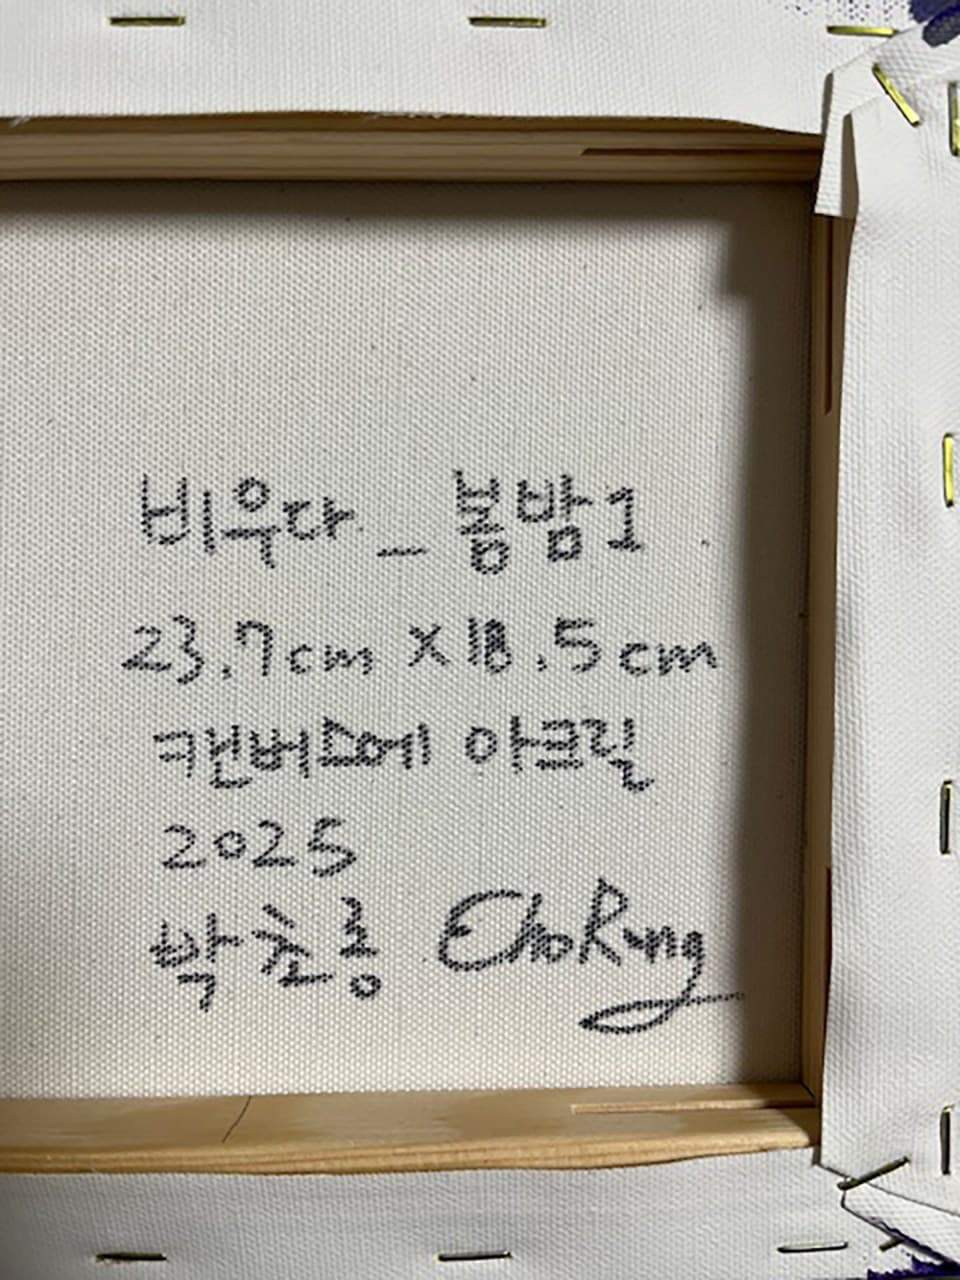 비우다_봄밤1
23.7cm X 18.5cm
캔버스에 아크릴
2025
박초롱 ChoRong